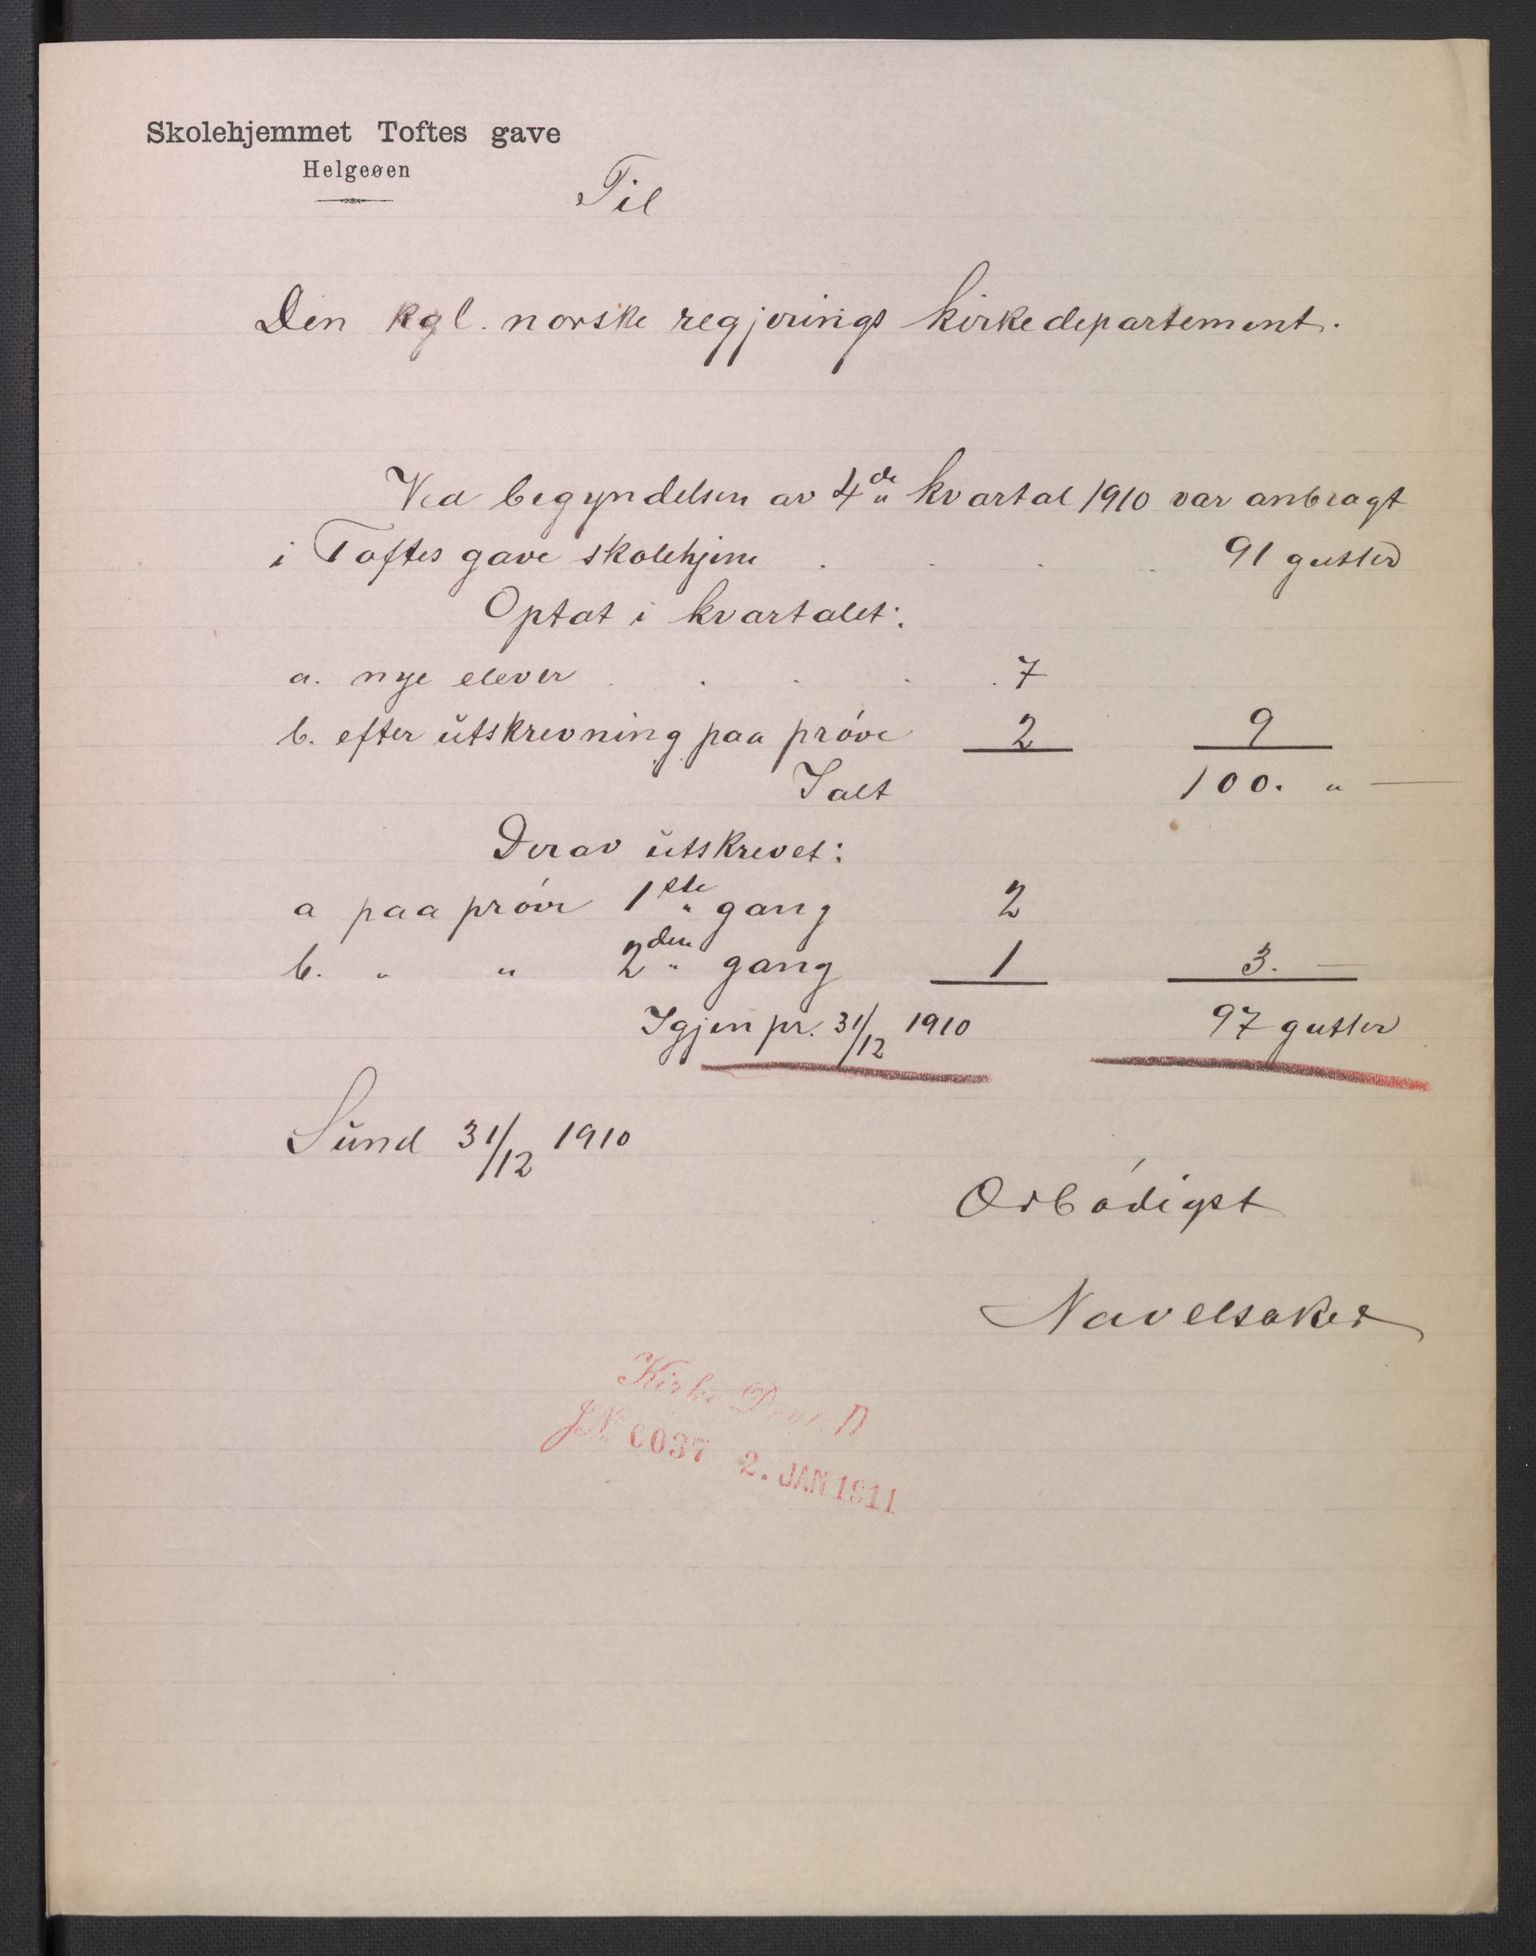 Skolehjemmet Toftes gave
Helgeøen
Til
Den kgl. norske regjerings kirkedepartement.
Ved begyndelsen av 4de kvartal 1910 var anbragt
i Toftes gave skolehjem . . . . 91 gutter
Optat i kvartalet:
a. nye elever . . . . . 7
b. efter utskrevning paa prøve 2 9
Ialt 100. " —
Derav utskrevet:
a paa prøve 1ste gang 2
b. " " 2den gang 1 3. —
Igjen pr. 31/12 1910 97 gutter
Sund 31/12 1910
Ærbødigst
Navelsaker
Kirke Dept. D
J.№ 0037 2. JAN 1911